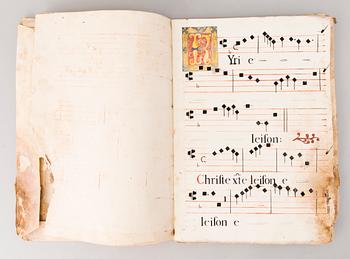 Yri e
leison:
Christe xp̄e leison e
leison e